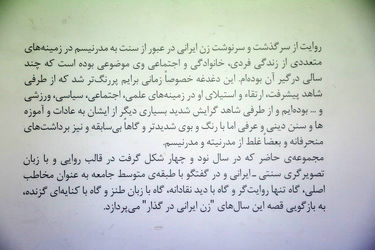 روایت از سرگذشت و سرنوشت زن ایرانی در عبور از سنت به مدرنیسم در زمینه‌های
متعددی از زندگی فردی، خانوادگی و اجتماعی وی موضوعی بوده است که چند
سالی درگیر آن بوده‌ام. این دغدغه خصوصاً زمانی برایم پررنگ‌تر شد که از طرفی
شاهد پیشرفت، ارتقاء و استیلای او در زمینه‌های علمی، اجتماعی، سیاسی، ورزشی
و ... بوده‌ایم و از طرفی شاهد گرایش شدید بسیاری دیگر از ایشان به عادات و آموزه
ها و سنن دینی و عرفی اما با رنگ و بوی شدیدتر و گاهاً بی‌سابقه و نیز برداشت‌های
منحرفانه و بعضاً غلط از مدرنیته و مدرنیسم.
مجموعه‌ی حاضر که در سال نود و چهار شکل گرفت در قالب روایی و با زبان
تصویرگری سنتی -ایرانی و در گفتگو با طبقه‌ی متوسط جامعه به عنوان مخاطب
اصلی، گاه تنها روایت‌گر و گاه با دید نقادانه، گاه با زبان طنز و گاه با کنایه‌ای گزنده،
به بازگویی قصه این سال‌های "زن ایرانی در گذار" می‌پردازد.